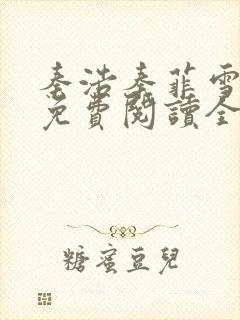 秦浩秦菲雪
免費閱讀全
糖蜜豆兒